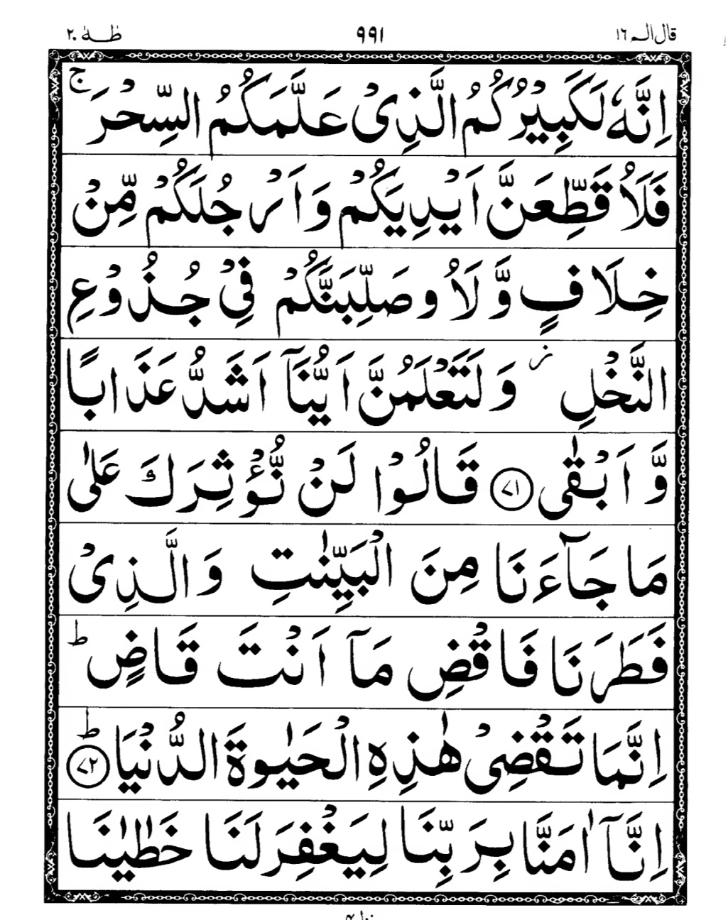 قال الم ١٦ ٩٩١ طٰهٰ ٢٠
اِنَّهٗ لَكَبِيْرُكُمُ الَّذِىْ عَلَّمَكُمُ السِّحْرَ ۚ
فَلَاُ قَطِّعَنَّ اَيْدِيَكُمْ وَاَرْجُلَكُمْ مِّنْ
خِلَافٍ وَّلَاُ وصَلِّبَنَّكُمْ فِىْ جُذُوْعِ
النَّخْلِ ز وَلَتَعْلَمُنَّ اَيُّنَآ اَشَدُّ عَذَابًا
وَّاَبْقٰى ﴿٧١﴾ قَالُوْا لَنْ نُّؤْثِرَكَ عَلٰى
مَا جَآءَنَا مِنَ الْبَيِّنٰتِ وَالَّذِىْ
فَطَرَنَا فَاقْضِ مَآ اَنْتَ قَاضٍ ؕ
اِنَّمَا تَقْضِىْ هٰذِهِ الْحَيٰوةَ الدُّنْيَا ؕ ﴿٧٢﴾
اِنَّآ اٰمَنَّا بِرَبِّنَا لِيَغْفِرَ لَنَا خَطٰيٰنَا